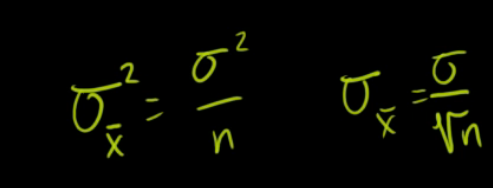 σ²_x̄ = σ²/n    σ_x̄ = σ/√n